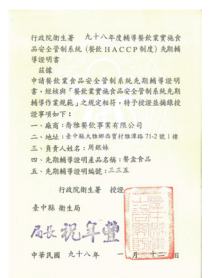 行政院衛生署 九十八年度輔導餐飲業實施食
品安全管制系統(餐飲HACCP制度)先期輔
導證明書
茲據
申請餐飲業食品安全管制系統先期輔導證明
書,經核與「餐飲業實施食品安全管制系統先期
輔導作業規範」之規定相符,特予授證並摘錄授
證事項如下:
一、廠商:奇雅餐飲事業有限公司
二、地址:臺中縣大雅鄉西寶村雅潭路71-2號1樓
三、負責人姓名:周銀妹
四、先期輔導證明產品名稱:餐盒食品
五、先期輔導證明編號:二三五
行政院衛生署 授證
臺中縣 衛生局
局長 祝年豐
中華民國 九十八年 月 十二 日